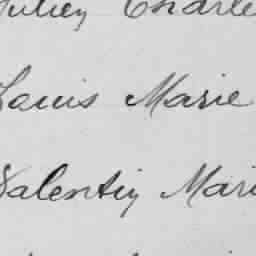 Julien Charle
Louis Marie
Valentin Mari